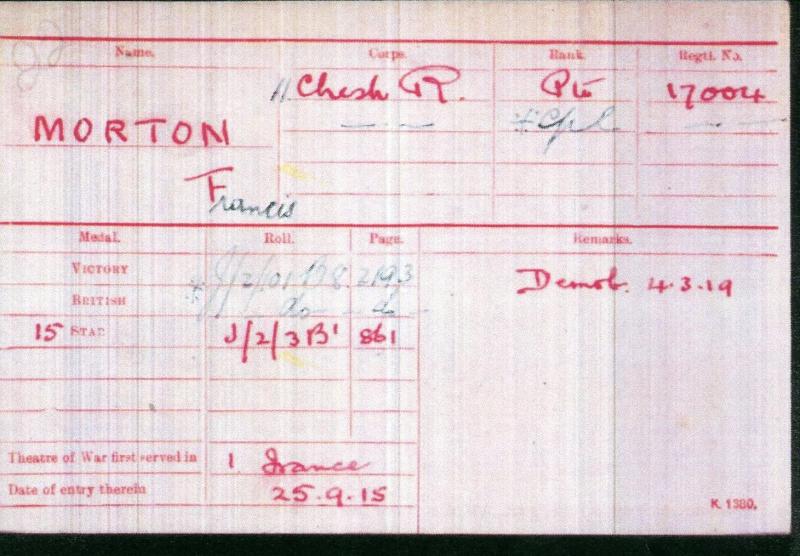 Name. Corps. Rank. Regtl. No.
Chesh R. Pte 17004
MORTON — — * Cpl —
Francis
Medal. Roll. Page. Remarks.
VICTORY * J/2/101 B8 2193 Demob. 4.3.19
BRITISH * do do
15 STAR J/2/3 B' 861
Theatre of War first served in 1 France
Date of entry therein 25.9.15
K. 1380.